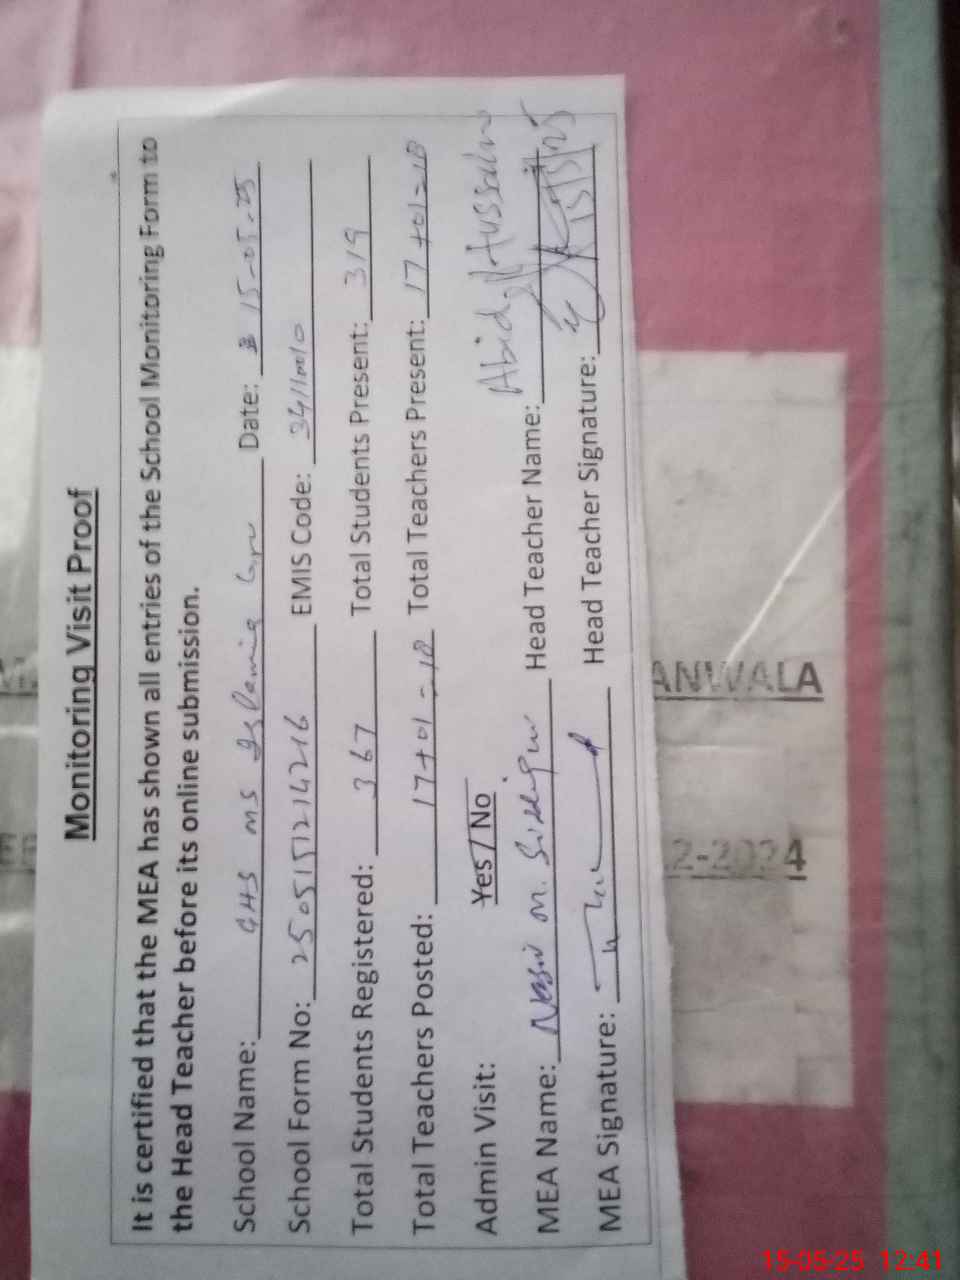 Monitoring Visit Proof
It is certified that the MEA has shown all entries of the School Monitoring Form to
the Head Teacher before its online submission.
School Name: GHS MS Islamia Date: 15-05-25
School Form No: 2505151214216 EMIS Code:
Total Students Registered: 367 Total Students Present: 319
Total Teachers Posted: 17+01=18 Total Teachers Present: 17+01=18
Admin Visit: Yes / No
MEA Name: M. Head Teacher Name: Abid Hussain
MEA Signature: Head Teacher Signature: 15/5/25
ANWALA
2-2024
15-05-25 12:41